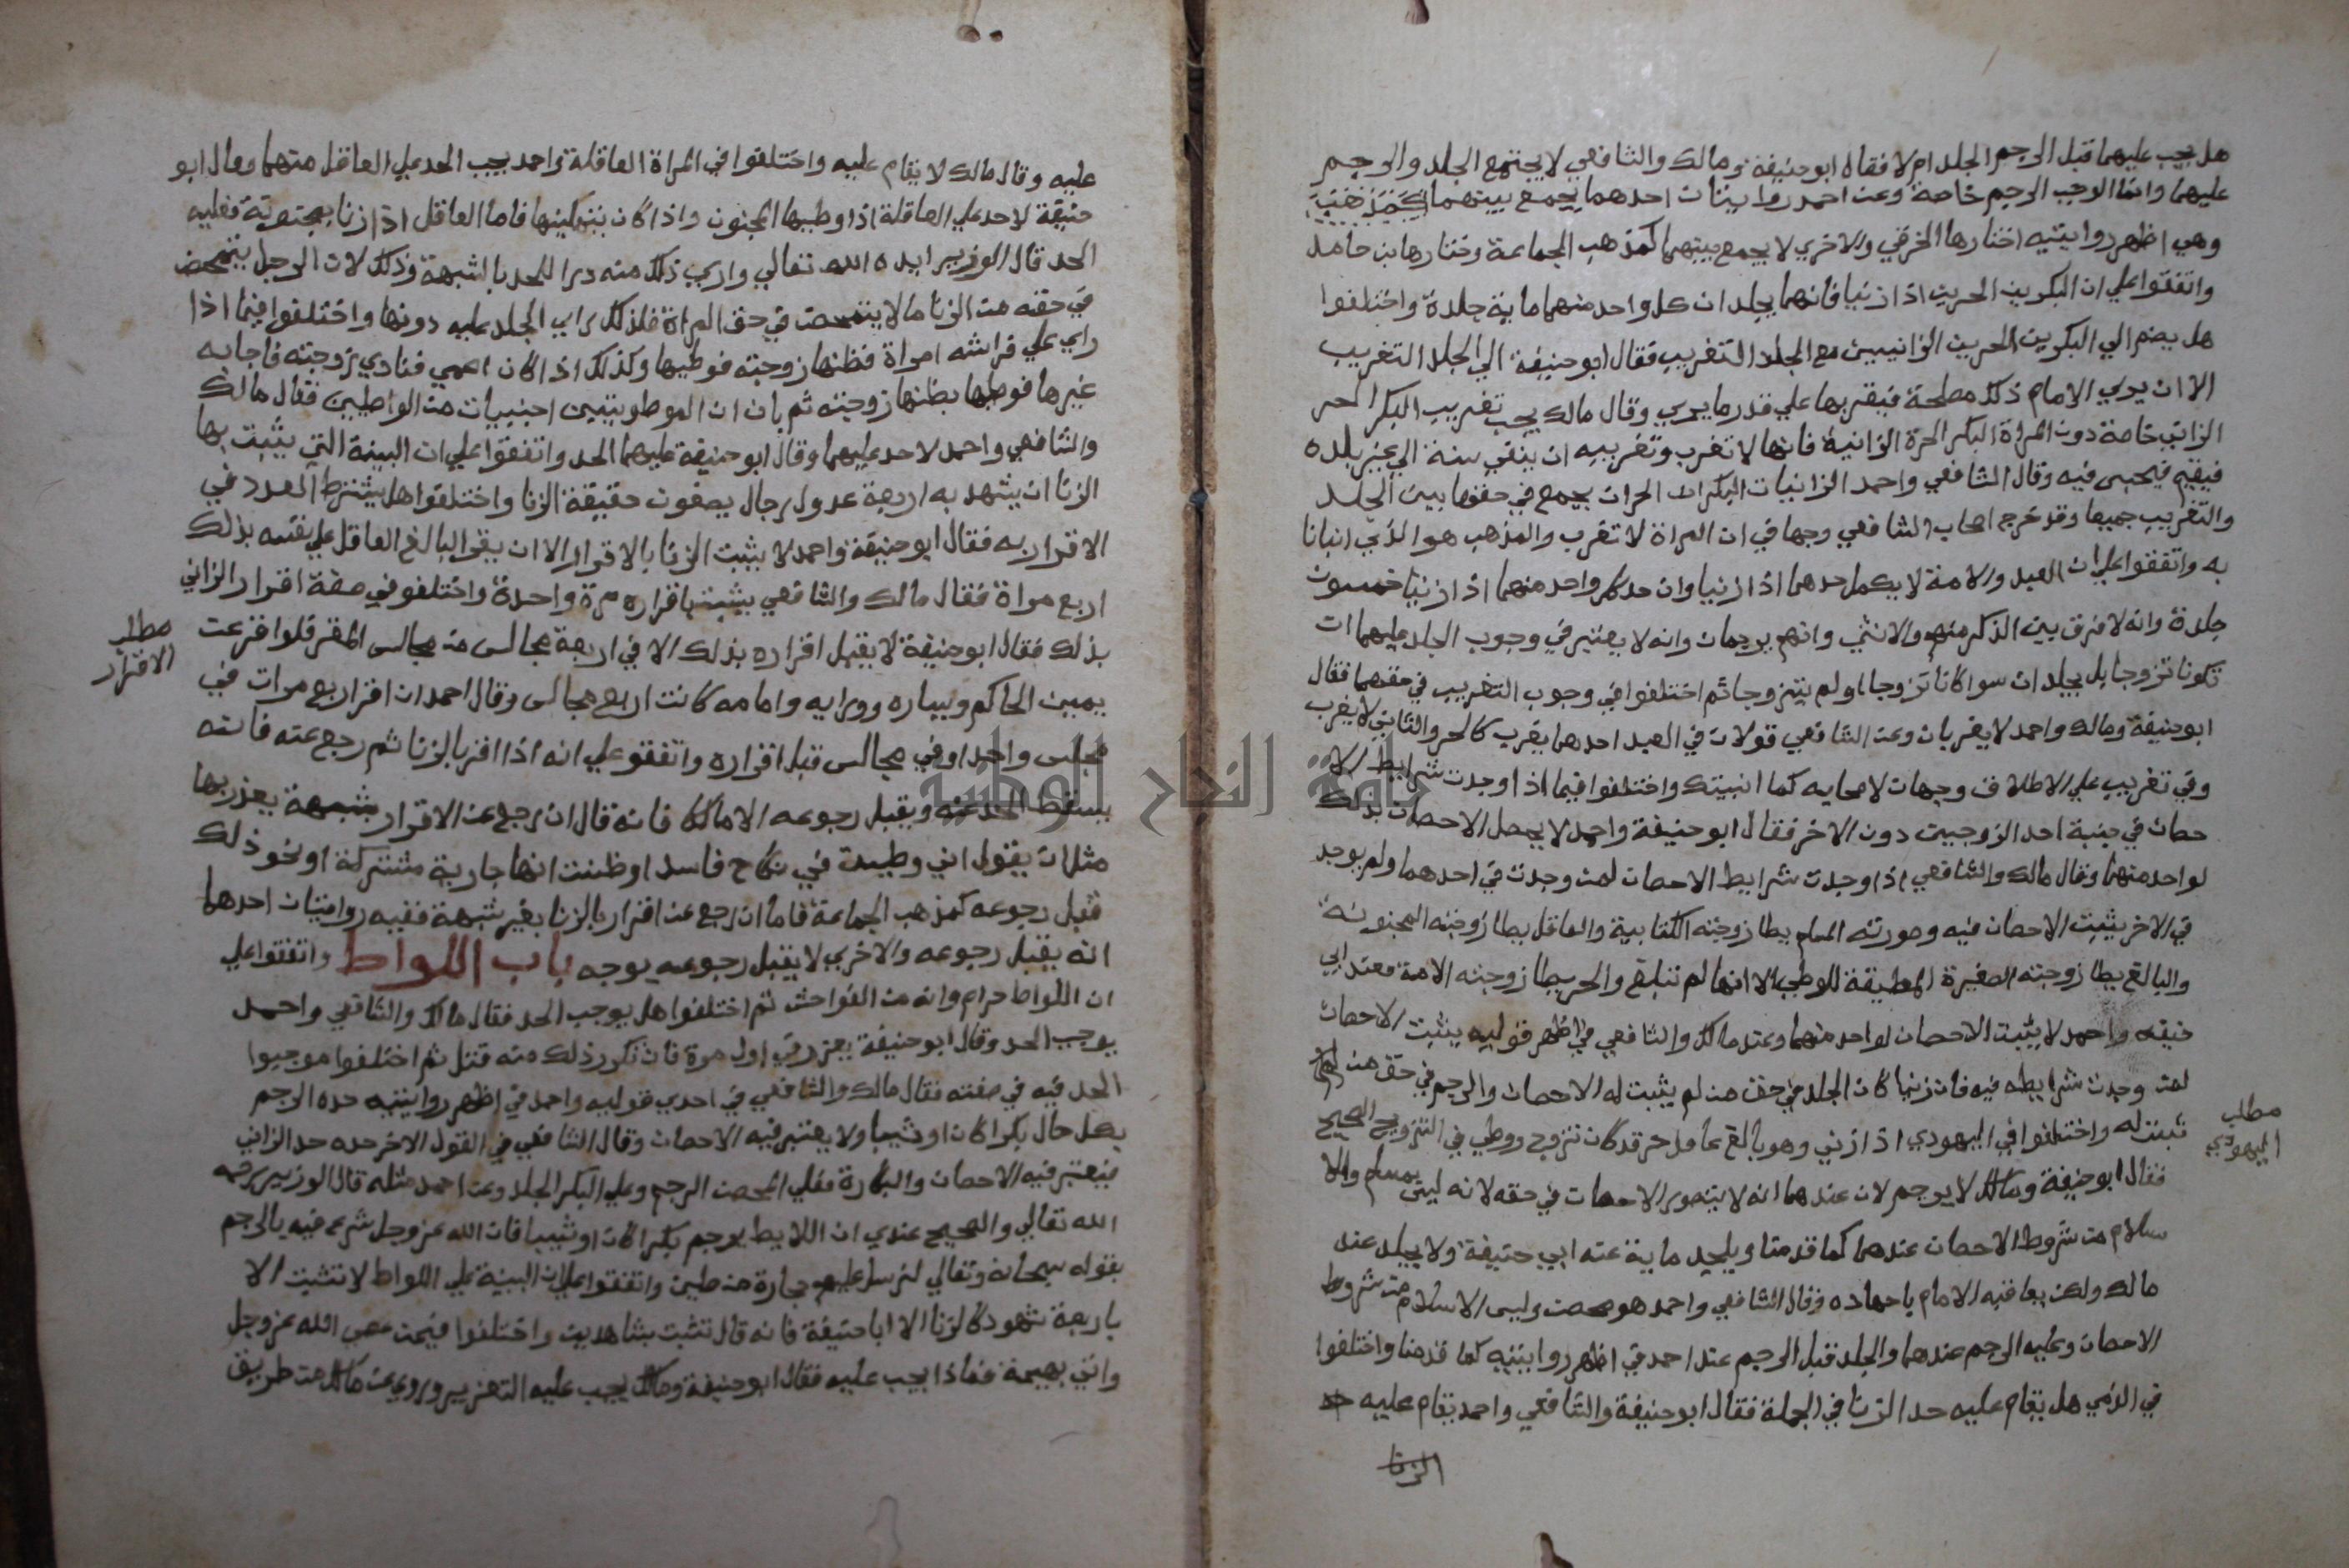 هل يجب عليهما قبل الرجم الجلد ام لا فقال ابو حنيفة ومالك والشافعي لا يجتمع الجلد والرجم
عليهما وانما الوجب الرجم خاصة وعن احمد روايتان احدهما يجمع بينهما
وهي اظهر روايتيه اختارها الخرقي والاخري لا يجمع بينهما كمذهب الجماعة وختارها بن حامد
واتفقوا علي ان البكرين الحرين اذا زنيا فانهما يجلدان كل واحد منهما ماية جلدة واختلفوا
هل يضم الي البكرين الحرين الزانيين مع الجلد التغريب فقال ابو حنيفة الي الجلد التغريب
الا ان يري الامام ذلك مصلحة فيغربهما علي قدر ما يري وقال مالك يجب تغريب البكر الحر
الزاني خاصة دون المراة البكر الحرة الزانية فانها لا تغرب وتغريبه ان ينفي سنة الي غير بلده
فيقيم فيحبس فيه وقال الشافعي واحمد الزانيات البكرات الحران يجمع في حقهما بين الجلد
والتغريب جميعا وقد خرج اصحاب الشافعي وجها في ان المراة لا تغرب والمذهب هو الذي انبانا
به واتفقوا علي ان العبد والامة لا يكمل حدهما اذا زنيا وان حد كل واحد منهما اذا زنيا خمسون
جلدة وانه لا فرق بين الذكر منهم والانثي وانهم يرجمان وانه لا يعتبر في وجوب الجلد عليهما ان
تكونا تزوجا بل يجلدان سوا كانا تزوجا او لم يتزوجا ثم اختلفوا في وجوب التغريب في حقهما فقال
ابو حنيفة ومالك واحمد لا يغربان وعن الشافعي قولان في العبد احدهما يغرب كالحر والثاني لا يغرب
وفي تغريب علي الاطلاق وجهان لاصحابه كما انبيتك واختلفوا فيما اذا وجدت شرايط الا
حصان في جنبة احد الزوجين دون الاخر فقال ابو حنيفة واحمد لا يحصل الاحصان بذلك
لواحد منهما وقال مالك والشافعي اذا وجدت شرايط الاحصان لمن وجدت في احدهما ولم يوجد
في الاخر يثبت الاحصان فيه وصورته المسلم يطا زوجته الكتابية والعاقل يطا زوجته المجنونة
والبالغ يطا زوجته الصغيرة المطيقة للوطي الا انها لم تبلغ والحر يطا زوجته الامة فعند ابي
حنيفه واحمد لا يثبت الاحصان لواحد منهما وعند مالك والشافعي في اظهر قوليه يثبت الاحصان
لمن وجدت شرايطه فيه فان زنيا كان الجلد في حق من لم يثبت له الاحصان والرجم في حق من لم
تبنت له واختلفوا في اليهودي اذا زني وهو بالغ عاقل حر قد كان تزوج ووطي في التزويج الصحيح
مطلب
اليهودي
فقال ابو حنيفة ومالك لا يرجم لان عندهما انه لا يتصور الاحصان في حقه لانه ليس بمسلم والا
سلام من شروط الاحصان عندهما كما قدمنا ويلجد ماية عنه ابي حنيفة ولا يجلد عند
مالك ولكن يعاقبه الامام باجهاده وقال الشافعي واحمد هو محصن وليس الاسلام من شروط
الاحصان وعليه الرجم عندهما والجلد قبل الرجم عند احمد في اظهر روايتيه كما قدمنا واختلفوا
في الذمي هل يقام عليه حد الزنا في الجملة فقال ابو حنيفة والشافعي واحمد يقام عليه حد
الزنا
عليه وقال مالك لا يقام عليه واختلفوا في المراة العاقلة واحمد يجب الحد علي العاقل منهما وقال ابو
حنيفة لا حد علي العاقلة اذا وطيها المجنون واذا كان بتمكينها فاما العاقل اذا زنا بمجنونة فعليه
الحد قال الوزير ايده الله تعالي واري ذلك منه درا للحد بالشبهة وذلك لان الرجل يتمحض
في حقه من الزنا ما لا يتمحض في حق المراة فلذلك راي الجلد عليه دونها واختلفوا فيما اذا
راي علي فراشه امراة فظنها زوجته فوطيها وكذلك اذا كان اعمي فنادي زوجته فاجابه
غيرها فوطيها يظنها زوجته ثم بان ان الموطويتين اجنبيات من الواطيين فقال مالك
والشافعي واحمد لا حد عليهما وقال ابو حنيفة عليهما الحد واتفقوا علي ان البينة التي يثبت بها
الزنا ان يشهد به اربعة عدول رجال يصفون حقيقة الزنا واختلفوا هل يشترط العدد في
الاقرار به فقال ابو حنيفة واحمد لا يثبت الزنا بالاقرار الا ان يقر البالغ العاقل علي نفسه بذلك
اربع مراة فقال مالك والشافعي يثبت باقراره مرة واحدة واختلفو في صفة اقرار الزاني
مطلب
الاقرار
بذلك فقال ابو حنيفة لا يقبل اقراره بذلك الا في اربعة مجالس من مجالس المقر فلو اقر عن
يمين الحاكم ويساره وورايه وامامه كانت اربع مجالس وقال احمد ان اقر اربع مرات في
مجلس واحد او في مجالس قبل اقراره واتفقو علي انه اذا اقر بالزنا ثم رجع عنه فانه
يسقط الحد عنه ويقبل رجوعه الا مالكا فانه قال ان رجع عن الاقرار بشبهة يعذر بها
مثل ان يقول اني وطيت في نكاح فاسد او ظننت انها جارية مشتركة او نحو ذلك
قبل رجوعه كمذهب الجماعة فاما ان رجع عن اقرار بالزنا بغير شبهة ففيه روايتان احدهما
انه يقبل رجوعه والاخري لا يقبل رجوعه بوجه باب اللواط واتفقوا علي
ان اللواط حرام وانه من الفواحش ثم اختلفوا هل يوجب الحد فقال مالك والشافعي واحمد
يوجب الحد وقال ابو حنيفة يعزر في اول مرة فان تكرر ذلك منه قتل ثم اختلفوا موجبوا
الحد فيه في صفته فقال مالك والشافعي في احدي قوليه واحمد في اظهر روايتيه حده الرجم
بكل حال بكرا كان او ثيبا ولا يعتبر فيه الاحصان وقال الشافعي في القول الاخر حده حد الزاني
فيعتبر فيه الاحصان والبكارة فعلي المحصن الرجم وعلي البكر الجلد وعن احمد مثله قال الوزير رحمه
الله تعالي والصحيح عندي ان اللايط يرجم بكرا كان او ثيبا فان الله عز وجل شرع فيه بالرجم
بقوله سبحانه وتعالي لنرسل عليهم حجارة من طين واتفقوا علي ان البينة علي اللواط لا تثبت الا
باربعة شهود كالزنا الا ابا حنيفة فانه قال تثبت بشاهدين واختلفوا فيمن عصي الله عز وجل
واتي بهيمة فماذا يجب عليه فقال ابو حنيفة ومالك يجب عليه التعزير وروي عن مالك من طريق
جامعة النجاح الوطنية